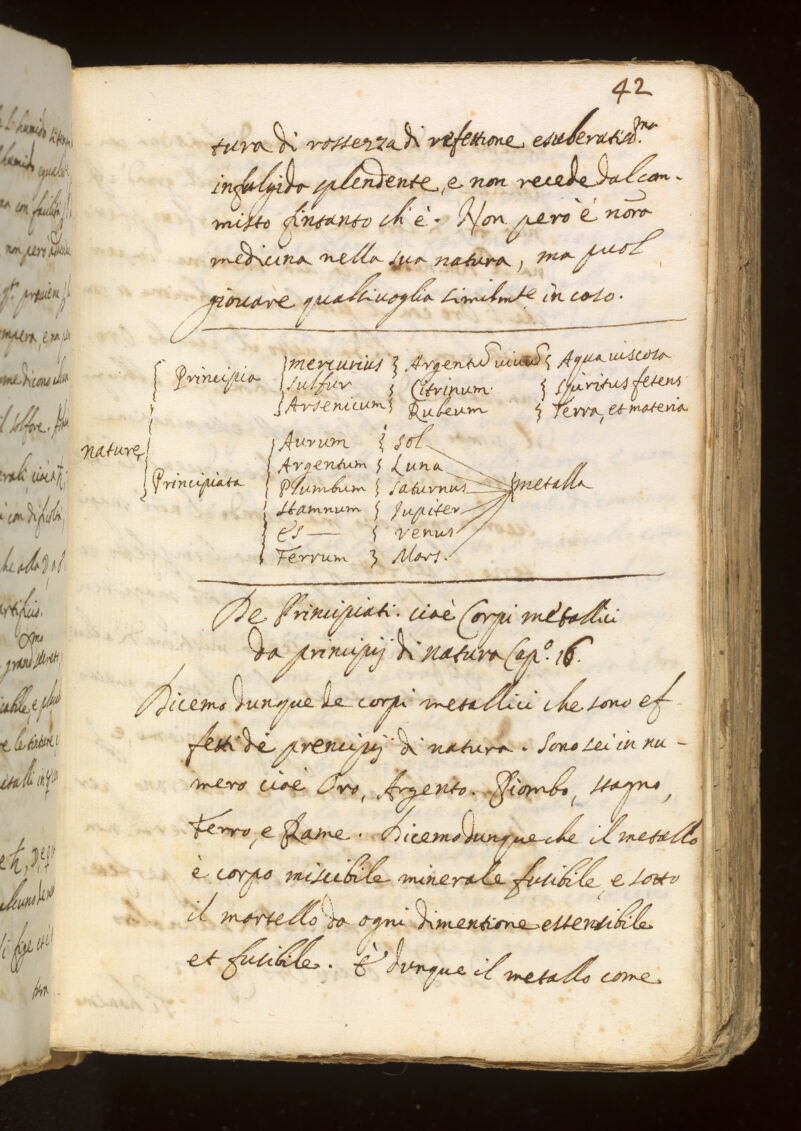 42
tura di rossezza di refettione esuberatiss.ma
infulgida splendente, e non recede dal com-
misto fintanto ch'è. Non però è nostra
medicina nella sua natura, ma puol
giovare qualsivoglia similmte in caso.
Principia mercurius Argentū vivum Aqua viscosa
sulfur Citrinum Spiritus fetens
Arsenicum Rubeum Terra, et materia
nature
Aurum Sol
Argentum Luna
Principiata Plumbum Saturnus metalla
Stamnum Jupiter
Es Venus
Ferrum Mars.
De Principiati. cioè Corpi metallici
da principij di natura Cap.o 16.
Dicemo dunque de corpi metallici che sono ef-
fetti de prencipij di natura. Sono sei in nu-
mero cioè Oro, Argento. Piombo, stagno,
Ferro, e Rame. Dicemo dunque che il metallo
è corpo miscibile minerale fusibile, e sotto
il martello da ogni dimentione estensibile
et fusibile. E' dunque il metallo come